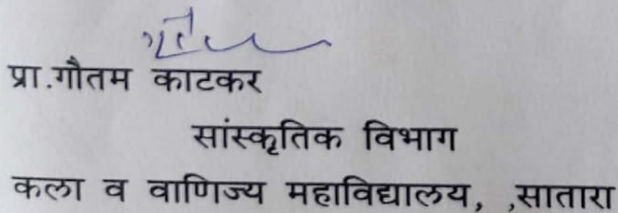 प्रा.गौतम काटकर
सांस्कृतिक विभाग
कला व वाणिज्य महाविद्यालय, ,सातारा